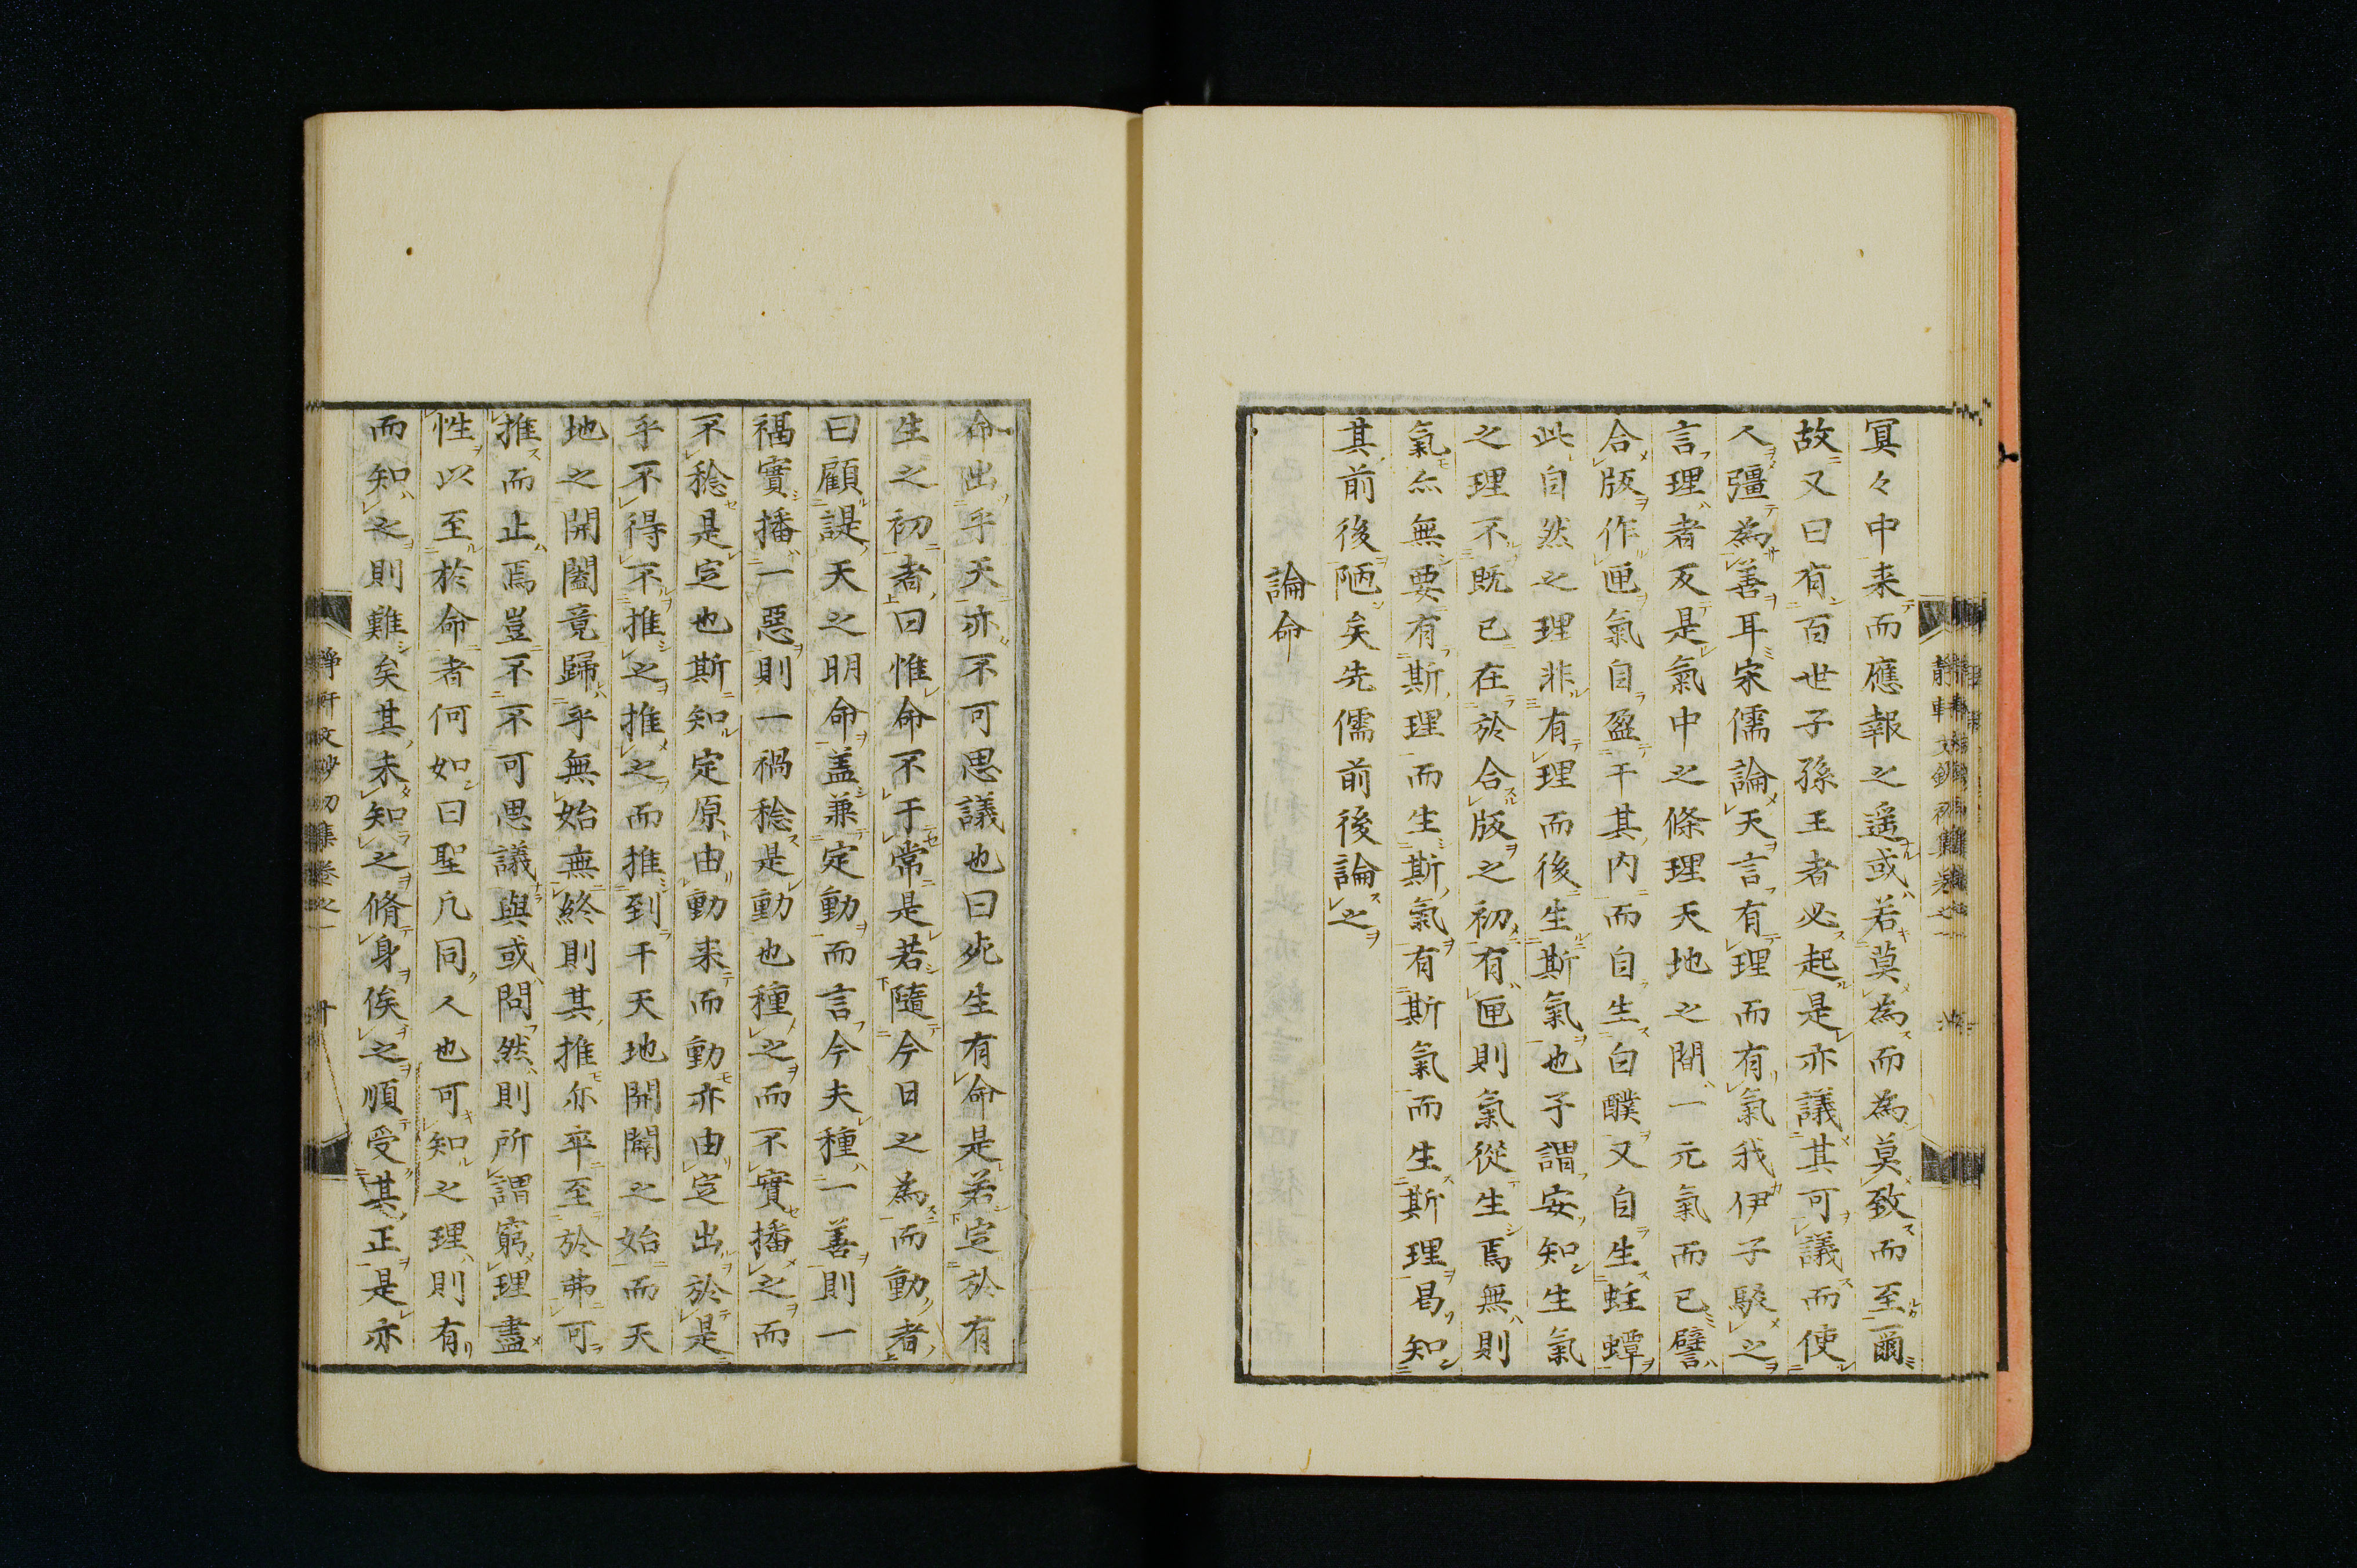 冥々中来而應報之遥或若莫為而為莫致而至爾
故又曰有百世子孫王者必起是亦議其可議而使
人彊為善耳宋儒論天言有理而有氣我伊子駁之
言理者反是氣中之條理天地之間一元氣而已譬
合版作匣氣自盈于其内而自生白醭又自生蛀蟫
此自然之理非有理而後生斯氣也子謂安知生氣
之理不既已在於合版之初有匣則氣從生焉無則
氣亦無要有斯理而生斯氣有斯氣而生斯理曷知
其前後陋矣先儒前後論之
論命
命出乎天亦不可思議也曰死生有命是若定於有
生之初者曰惟命不于常是若隨今日之為而動者
曰顧諟天之明命盖兼定動而言今夫種一善則一
福實播一惡則一禍稔是動也種之而不實播之而
不稔是定也斯知定原由動来而動亦由定出於是
乎不得不推之推之而推到于天地開闢之始而天
地之開闔竟歸乎無始無終則其推亦卒至於弗可
推而止焉豈不不可思議與或問然則所謂窮理盡
性以至於命者何如曰聖凡同人也可知之理則有
而知之則難矣其未知之脩身俟之順受其正是亦
靜軒文鈔初集卷之一
十